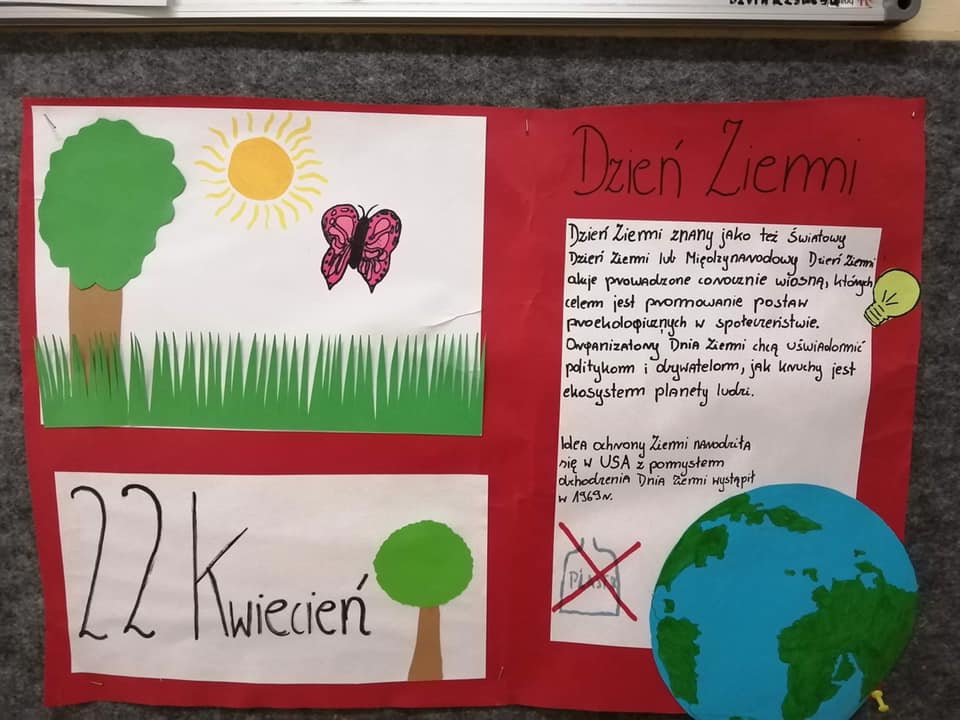 Dzień Ziemi
Dzień Ziemi znany jako też Światowy
Dzień Ziemi lub Międzynarodowy Dzień Ziemi
akcje prowadzone corocznie wiosną, których
celem jest promowanie postaw
proekologicznych w społeczeństwie.
Organizatorzy Dnia Ziemi chcą uświadomić
politykom i obywatelom, jak kruchy jest
ekosystem planety ludzi.
Idea ochrony Ziemi narodziła
się w USA z pomysłem
obchodzenia Dnia Ziemi wystąpił
w 1969r.
22 Kwiecień